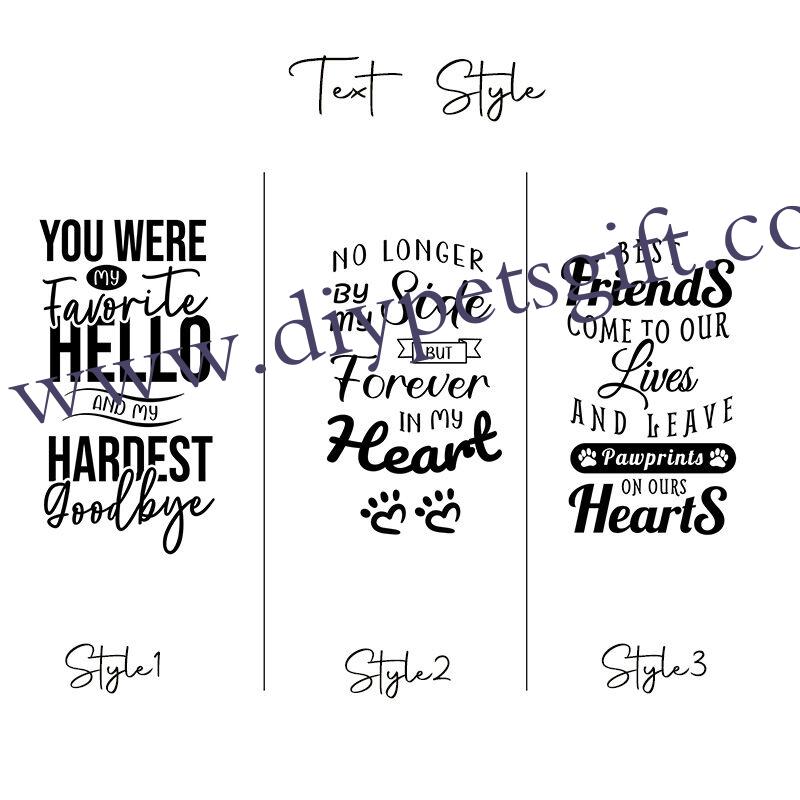 Text Style
YOU WERE
MY
Favorite
HELLO
AND MY
HARDEST
Goodbye
Style1
NO LONGER
BY MY Side
BUT
Forever
IN MY
Heart
Style2
BEST
FriendS
COME TO OUR
Lives
AND LEAVE
Pawprints
ON OURS
HeartS
Style3
www.diypetsgift.co